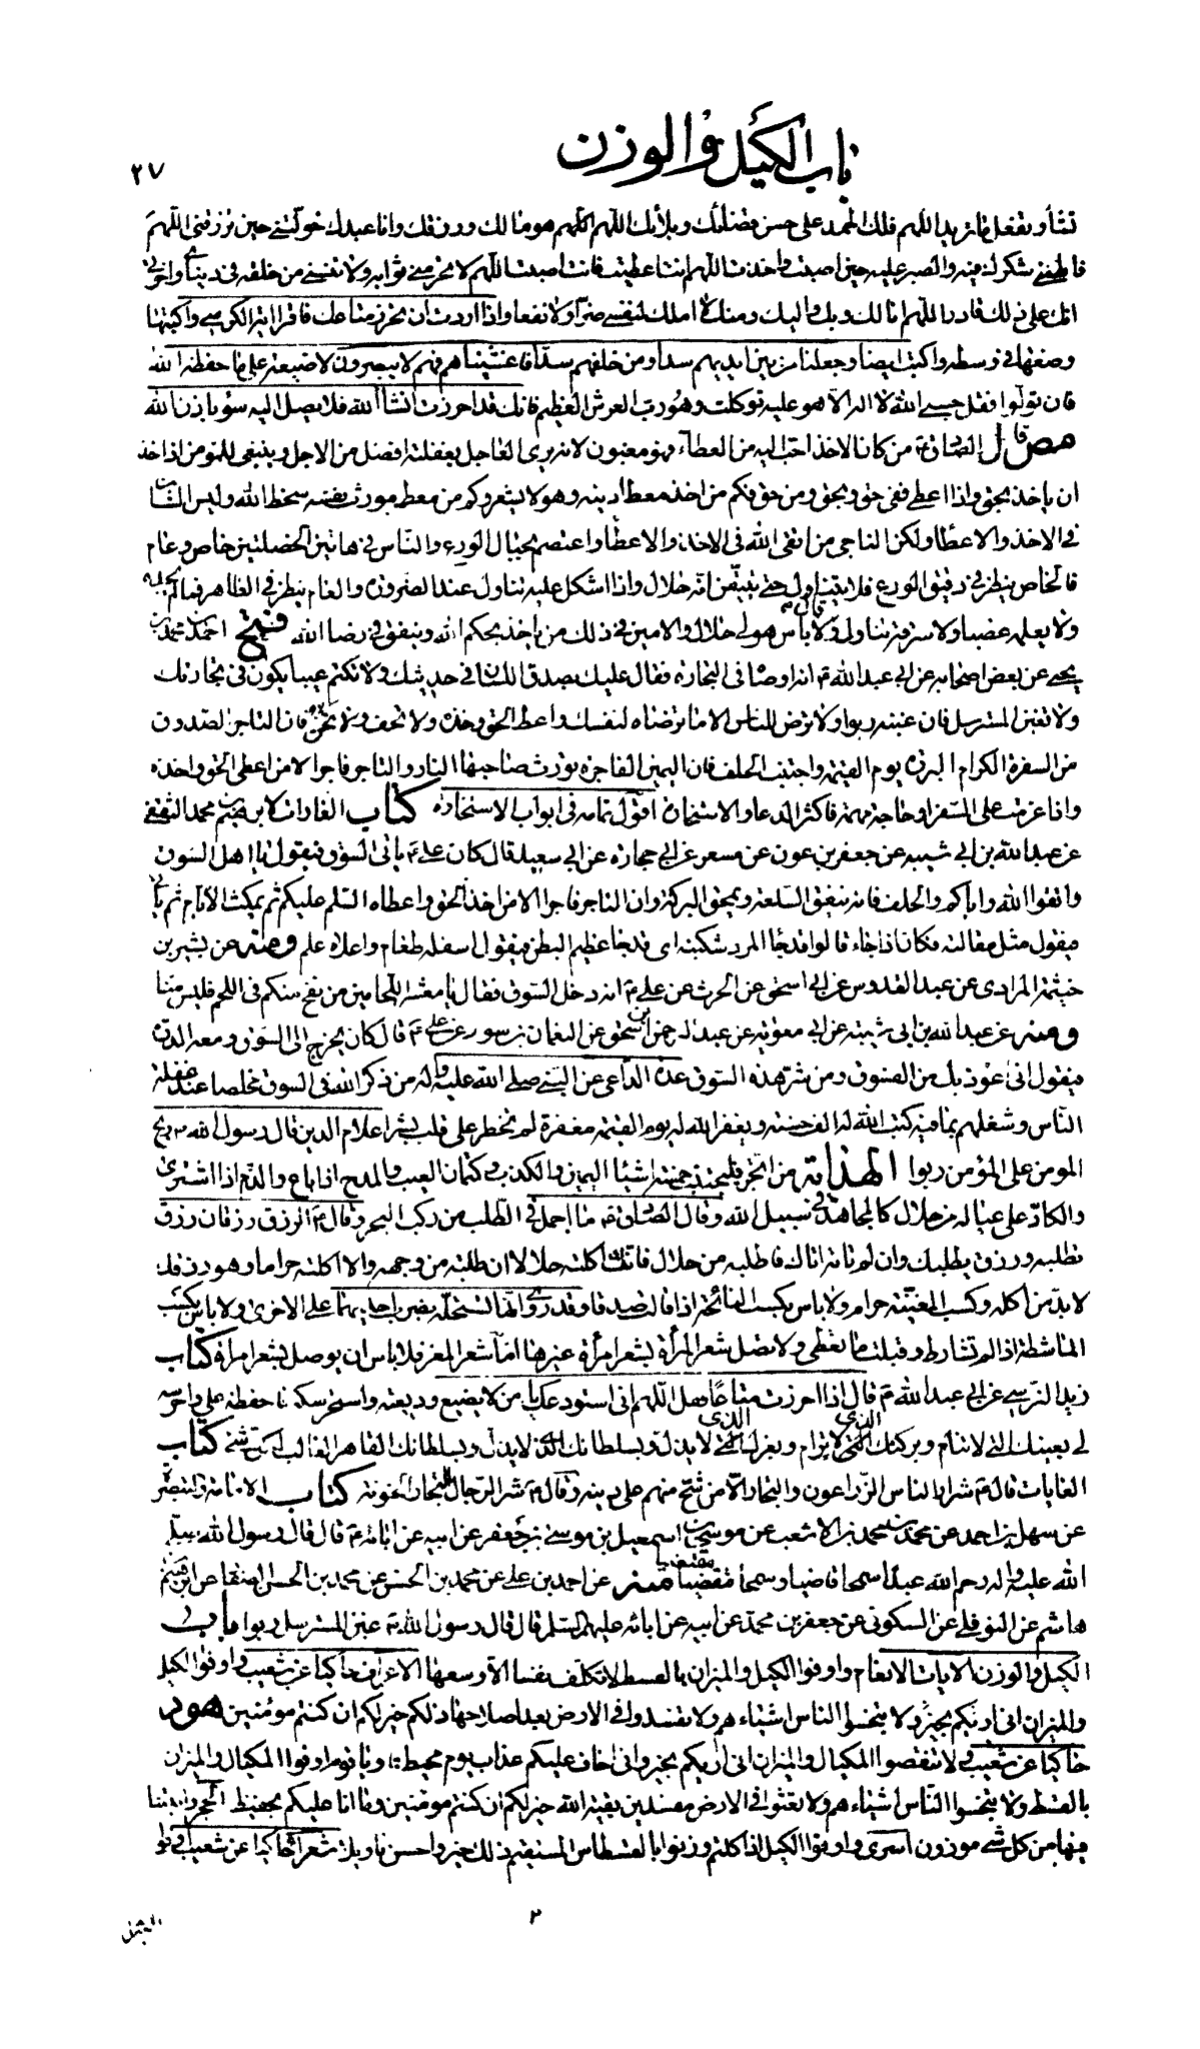 باب الكيل والوزن
٢٧
تشأ وتفعل ما تريد اللهم فلك الحمد على حسن قضائك وبلائك اللهم اللهم هو مالك ورزقك وانا عبدك خولتنى حين رزقتنى اللهم
فالهمنى شكرك فيه والصبر عليه حين اصبت واخذت اللهم انت اعطيت فانت اصبت اللهم لا تحرمنى ثوابه ولا تنسنى من خلفه فى دنياى واخرتى
انك على ذلك قادر اللهم انا لك وبك واليك ومنك لا املك لنفسى ضرا ولا نفعا واذا اردت ان تحرز متاعك فاقرأ اية الكرسى واكتبها
وضعها فى وسطه واكتب ايضا وجعلنا من بين ايديهم سدا ومن خلفهم سدا فاغشيناهم فهم لا يبصرون لا ضيعة على ما حفظه الله
فان تولوا فقل حسبى الله لا اله الا هو عليه توكلت وهو رب العرش العظيم فانك قد احرزت انشأ الله فلا يصل اليه سوء باذن الله
مص قال الصادق ع من كان الاخذ احب اليه من العطاء فهو مغبون لانه يرى العاجل بغفلته افضل من الاجل وينبغى للمؤمن اذا اخذ
ان ياخذ بحق واذا اعطى ففى حق وبحق ومن حق فكم من اخذ معط دينه وهو لا يشعر وكم من معط مورث نفسه سخط الله وليس الشأن
فى الاخذ والاعطا ولكن الناجى من اتقى الله فى الاخذ والاعطا واعتصم بحبال الورع والناس فى هاتين الخصلتين خاص وعام
فالخاص ينظر فى دقيق الورع فلا يتناول حتى يتيقن انه حلال واذا اشكل عليه تناول عند الضرورة والعام ينظر فى الظاهر فما لم يجده
ولا يعلمه غصبا ولا سرقة تناول وقال لا باس هو لى حلال والامين فى ذلك من ياخذ بحكم الله وينفق فى رضا الله فتح احمد بن محمد بن
يحيى عن بعض اصحابه عن ابى عبد الله ع انه اوصا فى التجارة فقال عليك بصدق اللسان فى حديثك ولا تكتم عيبا يكون فى تجارتك
ولا تغبن المسترسل فان غبنه ربوا ولا ترض للناس الا ما ترضاه لنفسك واعط الحق وخذه ولا تحف ولا تخن فان التاجر الصدوق
من السفرة الكرام البررة يوم القيمة واجتنب الحلف فان اليمين الفاجرة تورث صاحبها النار والتاجر فاجر الا من اعطى الحق واخذه
واذا عزمت على السفر او حاجة مهمة فاكثر الدعا والاستخارة اقول تمامه فى ابواب الاستخارة كتاب الغارات لابرهيم بن محمد الثقفى
عن عبد الله بن ابى شيبه عن جعفر بن عون عن مسعر عن ابى حجارة عن ابى سعيد قال كان على ع ياتى السوق فيقول يا اهل السوق
واتقوا الله واياكم والحلف فانه ينفق السلعة ويمحق البركة وان التاجر فاجر الا من اخذ الحق واعطاه السلم عليكم ثم يمكث الايام ثم ياتى
فيقول مثل مقالته فكان اذا جاء قالوا قد جا المرد شكنبه اى قد جا عظيم البطن فيقول اسفله طعام واعلاه علم ومنه عن بشير بن
خيثمة المرادى عن عبد القدوس عن ابى اسحق عن الحرث عن على ع انه دخل السوق فقال يا معشر اللحامين من نفخ منكم فى اللحم فليس منا
ومنه عن عبد الله بن ابى شيبة عن ابى معوية عن عبد الرحمن بن اسحق عن النعمان بن سعد عن على ع قال كان يخرج الى السوق ومعه الدرة
فيقول انى اعوذ بك من الفسوق ومن شر هذه السوق عدة الداعى عن النبى صلى الله عليه واله من ذكر الله فى السوق مخلصا عند غفلة
الناس وشغلهم بما فيه كتب الله له الف حسنة ويغفر الله له يوم القيمة مغفرة لم تخطر على قلب بشر اعلام الدين قال رسول الله ص ربح
المومن على المؤمن ربوا الهداية من اتجر فليجتنب خمسة اشيا اليمين والكذب وكتمان العيب والمدح اذا باع والذم اذا اشترى
والكاد على عياله من حلال كالمجاهد فى سبيل الله وقال الصادق ع ما اجمل فى الطلب من ركب البحر وقال ع الرزق رزقان رزق
تطلبه ورزق يطلبك وان لم تاته اتاك فاطلبه من حلال فانك اكلته حلالا ان طلبته من وجهه والا اكلته حراما وهو رزقك
لا بد من اكله وكسب المغنية حرام ولا باس بكسب النائحة اذا قالت صدقا وقد روى انها تستحله بضرب احدى يديها على الاخرى ولا باس بكسب
الماشطة اذا لم تشارط وقبلت ما تعطى ولا تصل شعر المرأة بشعر امرأة غيرها اما شعر المعز فلا باس ان يوصل بشعر امرأة كتاب
زيد النرسى عن ابى عبد الله ع قال اذا احرزت متاعا فقل اللهم انى استودعك يا من لا يضيع وديعته واستحرسكه فاحفظه على واحرسه
لى بعينك التى لا تنام وبركنك الذى لا يرام وبعزك الذى لا يذل وبسلطانك القاهر الغالب لكل شئ كتاب
الغايات قال ع شرار الناس الزراعون والتجار الا من شح منهم على دينه وقال ع شر الرجال التجار الخونة كتاب الامامة والتبصرة
عن سهل بن احمد عن محمد بن محمد بن الاشعث عن موسى بن اسمعيل بن موسى بن جعفر عن ابيه عن ابائه ع قال قال رسول الله صلى
الله عليه واله رحم الله عبدا سمحا قاضيا وسمحا مقتضيا ومنه عن احمد بن على عن محمد بن الحسن عن محمد بن الحسن الصفار عن ابرهيم بن
هاشم عن النوفلى عن السكونى عن جعفر بن محمد عن ابيه عن ابائه عليهم السلم قال قال رسول الله ص غبن المسترسل ربوا باب
الكيل والوزن الايات الانعام واوفوا الكيل والميزان بالقسط لا نكلف نفسا الا وسعها الاعراف حاكيا عن شعيب واوفوا الكيل
والميزان انى اريكم بخير ولا تبخسوا الناس اشياءهم ولا تفسدوا فى الارض بعد اصلاحها ذلكم خير لكم ان كنتم مؤمنين هود
حاكيا عن شعيب ولا تنقصوا المكيال والميزان انى اريكم بخير وانى اخاف عليكم عذاب يوم محيط ويا قوم اوفوا المكيال والميزان
بالقسط ولا تبخسوا الناس اشياءهم ولا تعثوا فى الارض مفسدين بقية الله خير لكم ان كنتم مؤمنين وما انا عليكم بحفيظ الحجر وانبتنا
فيها من كل شئ موزون اسرى واوفوا الكيل اذا كلتم وزنوا بالقسطاس المستقيم ذلك خير واحسن تاويلا شعراء حاكيا عن شعيب اوفوا
٢